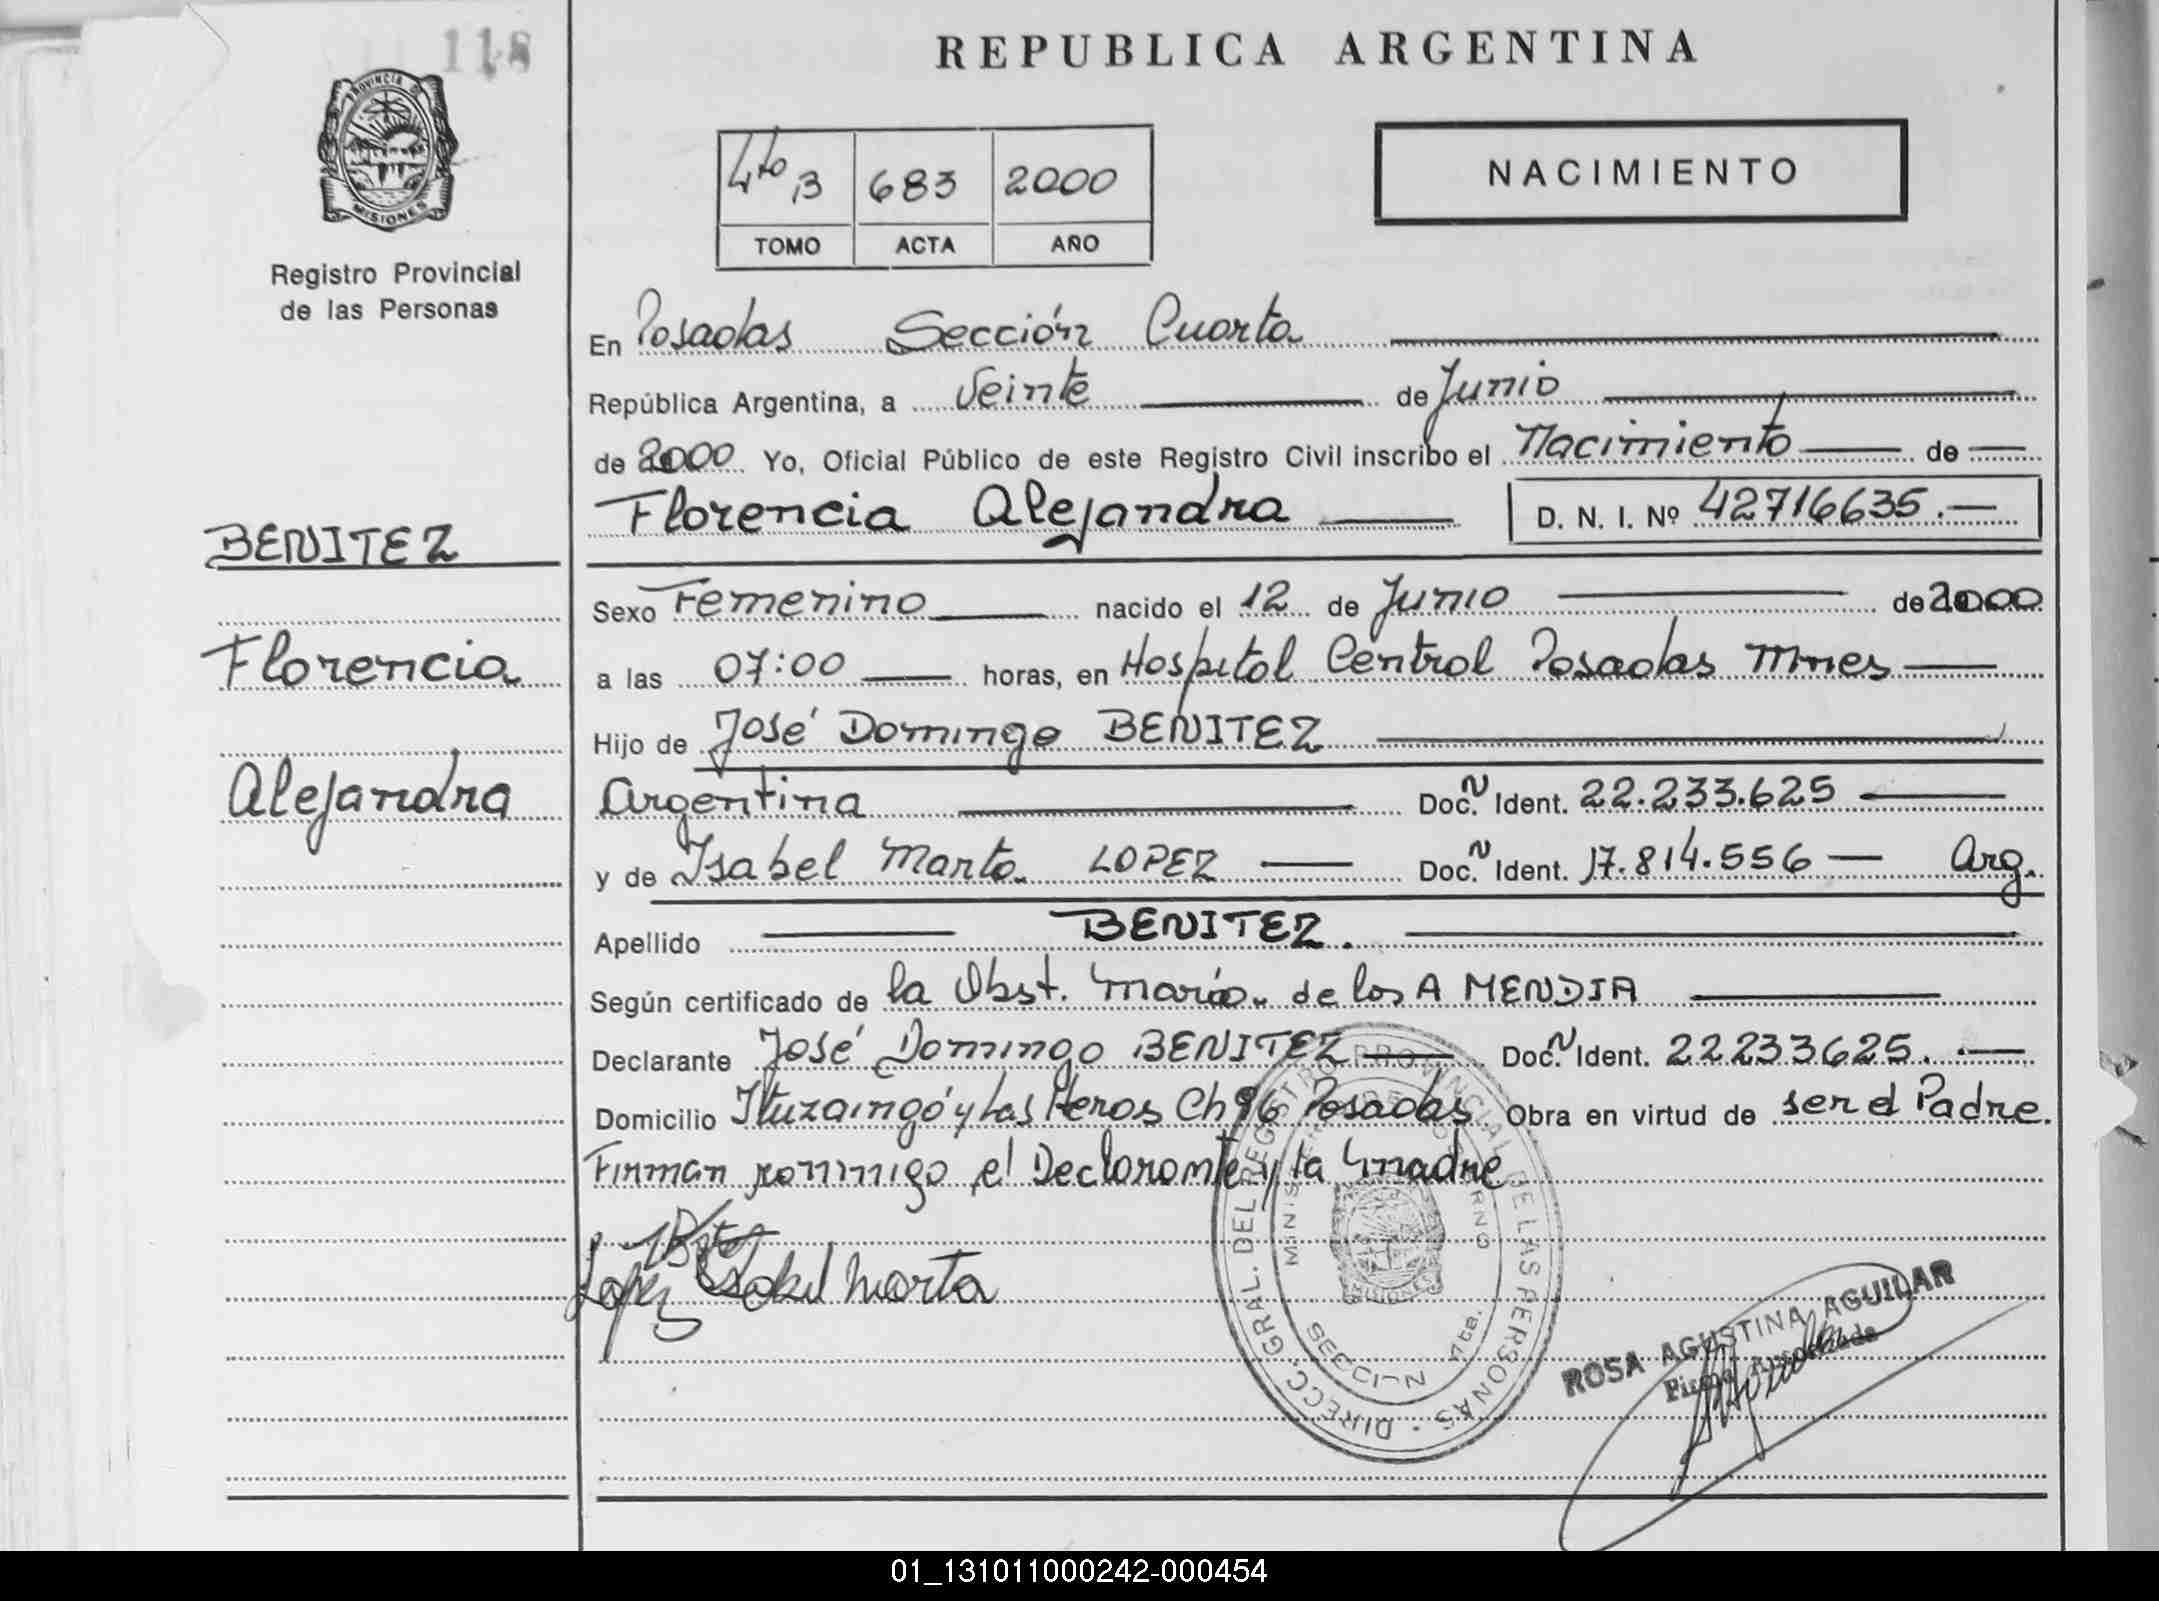 118
REPUBLICA ARGENTINA
PROVINCIA D
MISIONES
Registro Provincial
de las Personas
4to 13 683 2000
TOMO ACTA AÑO
NACIMIENTO
En Posadas Sección Cuarta
República Argentina, a Veinte de Junio
de 2000 Yo, Oficial Público de este Registro Civil inscribo el Nacimiento de
Florencia Alejandra D. N. I. Nº 42716635.
BENITEZ
Florencia
Alejandra
Sexo Femenino nacido el 12 de Junio de 2000
a las 07:00 horas, en Hospital Central Posadas Mnes
Hijo de José Domingo BENITEZ
Argentina Doc. N Ident. 22.233.625
y de Isabel Marta LOPEZ Doc. N Ident. 17.814.556 Arg.
Apellido BENITEZ.
Según certificado de la Obst. María de los A MENDIA
Declarante José Domingo BENITEZ Doc. N Ident. 22233625.
Domicilio Ituzaingó y Las Heros Ch 96 Posadas Obra en virtud de ser el Padre.
Firman conmigo el Declarante y la Madre
Lopez Isabel Marta
DIRECC. GRAL. DEL REGISTRO PROVINCIAL DE LAS PERSONAS
SECCION 4ta.
MISIONES
ROSA AGUSTINA AGUILAR
Firma Autorizada
01_131011000242-000454